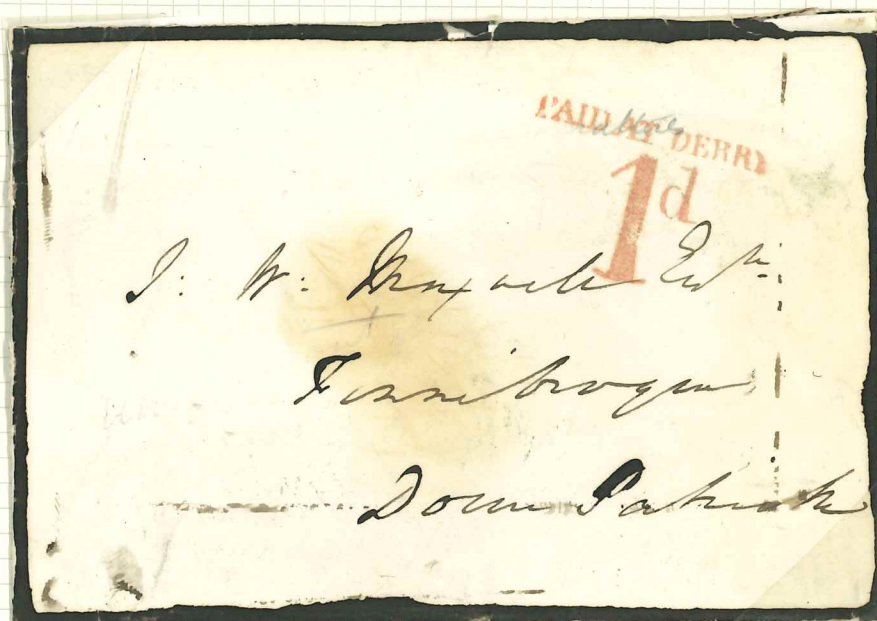 PAID AT DERRY
1d
J: W: Maxwell Esqr.
Finnibrogue
Down Patrick